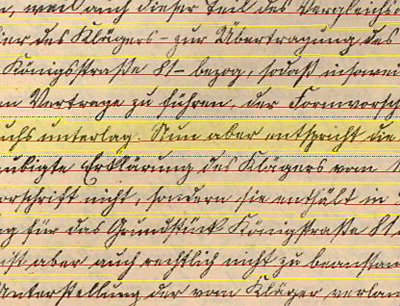 weil auch dieser Teil des Vergleichs
des Klägers - zur Übertragung des
Königsstraße 81 - bezog, sodaß insowei
Vertrage zu führen, der Formvorsch
uchs unterlag. Nun aber entspricht die
aubigte Erklärung des Klägers vom
orschrift nicht, sondern sie enthält in
g für das Grundstück Königstraße 81
ist aber auch rechtlich nicht zu beanstan
Unterstellung der vom Kläger verlan